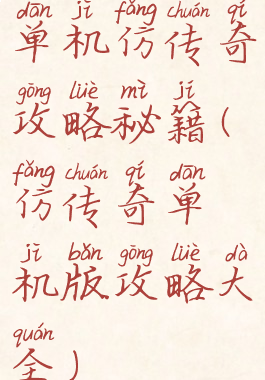 dān jī fǎng chuán qí
单机仿传奇
gōng lüè mì jí
攻略秘籍(
fǎng chuán qí dān
仿传奇单
jī bǎn gōng lüè dà
机版攻略大
quán
全)